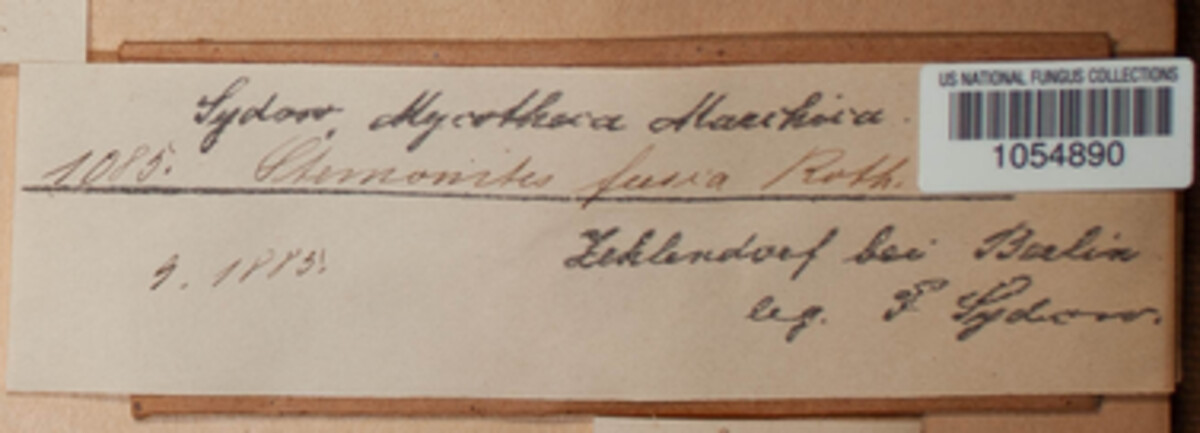 Sydow, Mycotheca Marchica.
1085. Stemonites fusca Roth.
9. 1885.
Zehlendorf bei Berlin
leg. P Sydow.
US NATIONAL FUNGUS COLLECTIONS
1054890